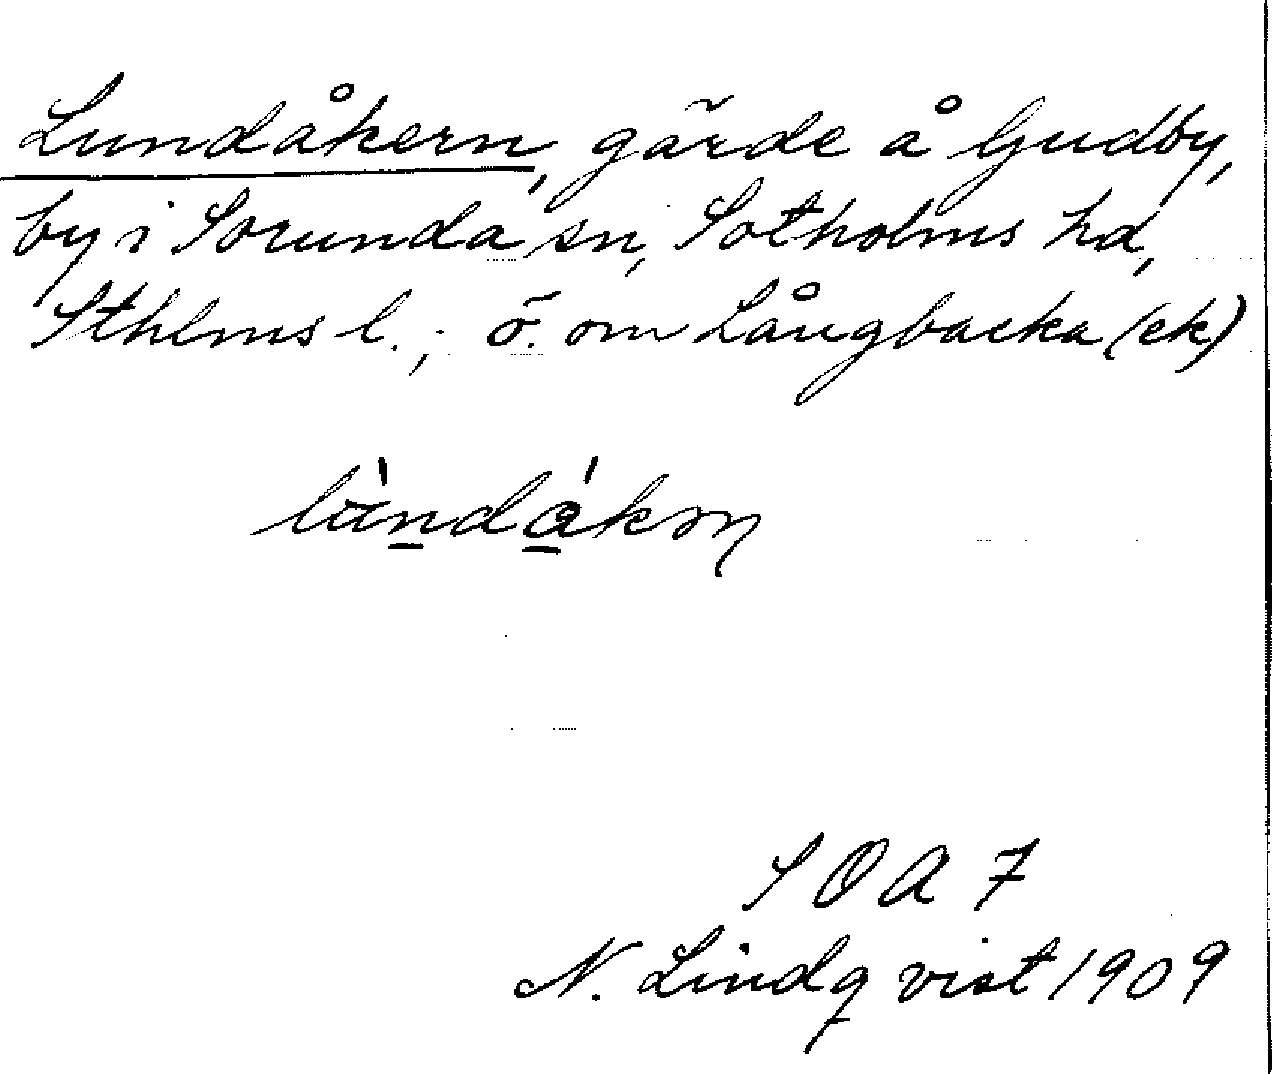 Lundåkern, gärde å Gudby,
by i Sorunda sn, Sotholms hd,
Sthlms l.; ö. om Långbacka (ek)
lùndákọn
S O A 7
N. Lindqvist 1909